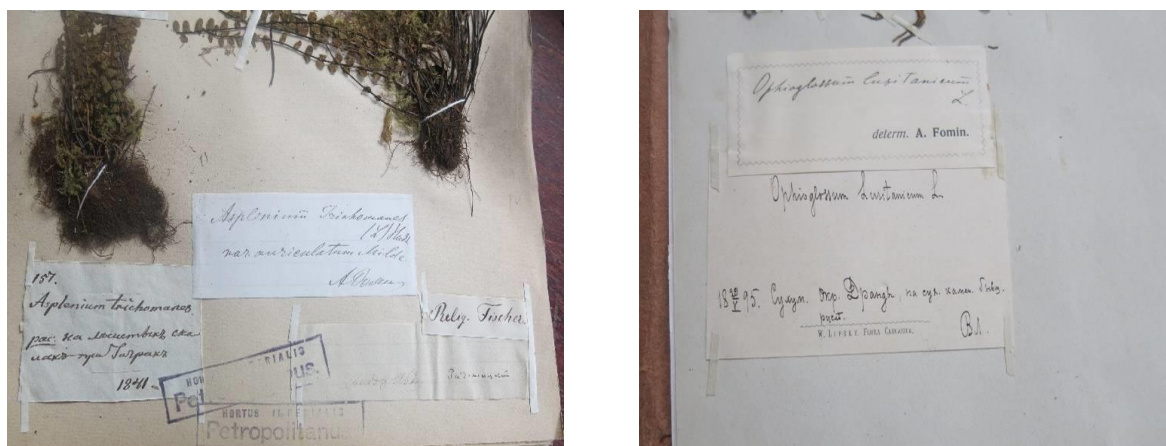 Asplenium Trichomanes
var. auriculatum Milde
157.
Asplenium trichomanes
рас. на мшистыхъ ска
лахъ при Гаграхъ
1841
Relig. Fischer
HORTUS IMPERIALIS
Petropolitanus
Ophioglossum lusitanicum
L.
determ. A. Fomin.
Ophioglossum Lusitanicum L
95. Сухум. окр. Дранды, на сух. камен.
W. LIPSKY. FLORA CAUCASICA.
ВЛ.